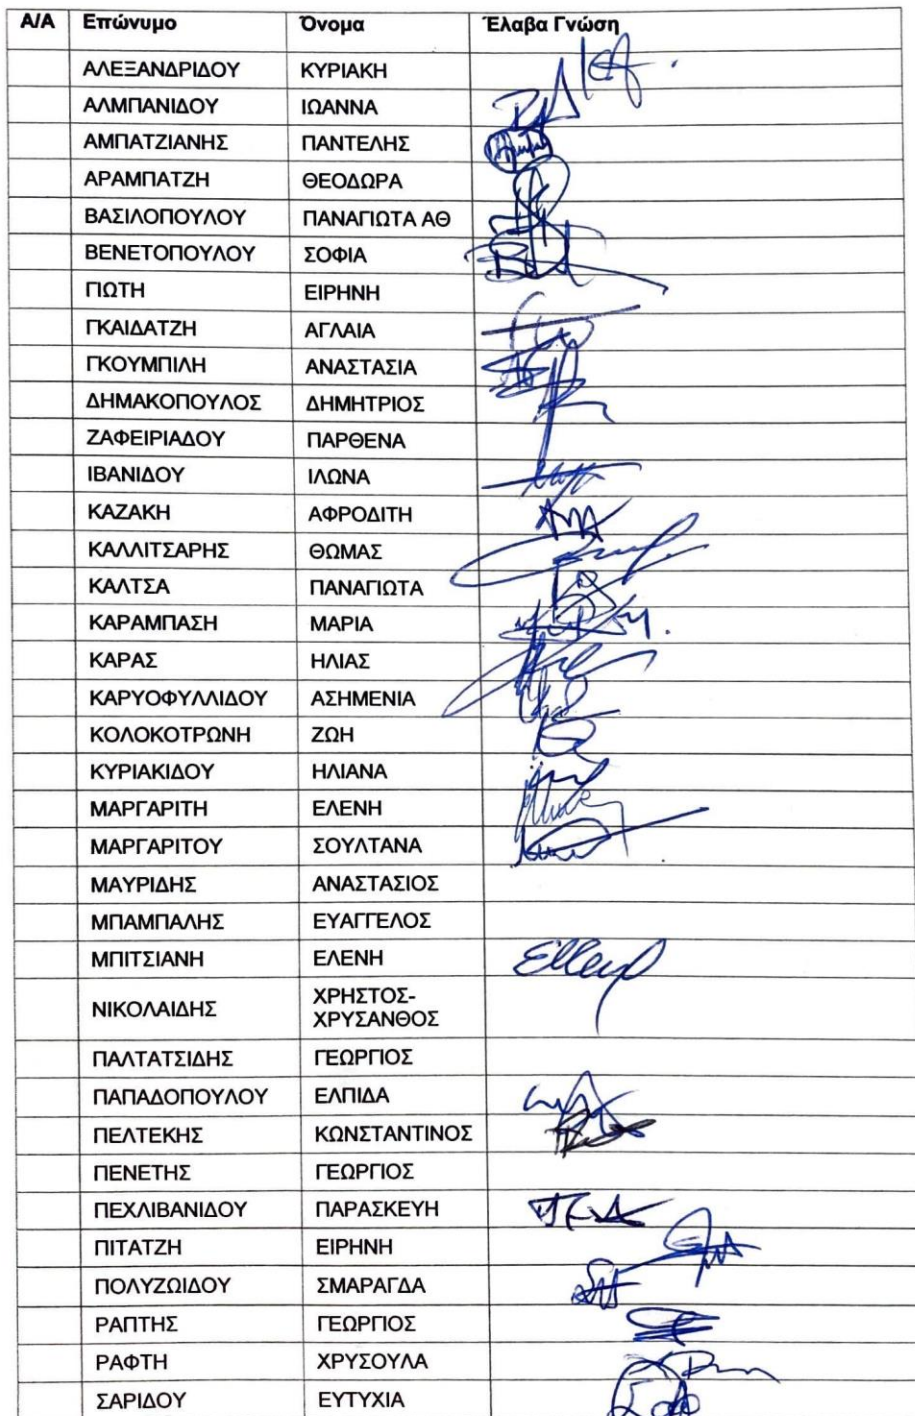 Α/Α Επώνυμο Όνομα Έλαβα Γνώση
ΑΛΕΞΑΝΔΡΙΔΟΥ ΚΥΡΙΑΚΗ
ΑΛΜΠΑΝΙΔΟΥ ΙΩΑΝΝΑ
ΑΜΠΑΤΖΙΑΝΗΣ ΠΑΝΤΕΛΗΣ
ΑΡΑΜΠΑΤΖΗ ΘΕΟΔΩΡΑ
ΒΑΣΙΛΟΠΟΥΛΟΥ ΠΑΝΑΓΙΩΤΑ ΑΘ
ΒΕΝΕΤΟΠΟΥΛΟΥ ΣΟΦΙΑ
ΓΙΩΤΗ ΕΙΡΗΝΗ
ΓΚΑΙΔΑΤΖΗ ΑΓΛΑΙΑ
ΓΚΟΥΜΠΙΛΗ ΑΝΑΣΤΑΣΙΑ
ΔΗΜΑΚΟΠΟΥΛΟΣ ΔΗΜΗΤΡΙΟΣ
ΖΑΦΕΙΡΙΑΔΟΥ ΠΑΡΘΕΝΑ
ΙΒΑΝΙΔΟΥ ΙΛΩΝΑ
ΚΑΖΑΚΗ ΑΦΡΟΔΙΤΗ
ΚΑΛΛΙΤΣΑΡΗΣ ΘΩΜΑΣ
ΚΑΛΤΣΑ ΠΑΝΑΓΙΩΤΑ
ΚΑΡΑΜΠΑΣΗ ΜΑΡΙΑ
ΚΑΡΑΣ ΗΛΙΑΣ
ΚΑΡΥΟΦΥΛΛΙΔΟΥ ΑΣΗΜΕΝΙΑ
ΚΟΛΟΚΟΤΡΩΝΗ ΖΩΗ
ΚΥΡΙΑΚΙΔΟΥ ΗΛΙΑΝΑ
ΜΑΡΓΑΡΙΤΗ ΕΛΕΝΗ
ΜΑΡΓΑΡΙΤΟΥ ΣΟΥΛΤΑΝΑ
ΜΑΥΡΙΔΗΣ ΑΝΑΣΤΑΣΙΟΣ
ΜΠΑΜΠΑΛΗΣ ΕΥΑΓΓΕΛΟΣ
ΜΠΙΤΣΙΑΝΗ ΕΛΕΝΗ
ΝΙΚΟΛΑΙΔΗΣ ΧΡΗΣΤΟΣ-
ΧΡΥΣΑΝΘΟΣ
ΠΑΛΤΑΤΣΙΔΗΣ ΓΕΩΡΓΙΟΣ
ΠΑΠΑΔΟΠΟΥΛΟΥ ΕΛΠΙΔΑ
ΠΕΛΤΕΚΗΣ ΚΩΝΣΤΑΝΤΙΝΟΣ
ΠΕΝΕΤΗΣ ΓΕΩΡΓΙΟΣ
ΠΕΧΛΙΒΑΝΙΔΟΥ ΠΑΡΑΣΚΕΥΗ
ΠΙΤΑΤΖΗ ΕΙΡΗΝΗ
ΠΟΛΥΖΩΙΔΟΥ ΣΜΑΡΑΓΔΑ
ΡΑΠΤΗΣ ΓΕΩΡΓΙΟΣ
ΡΑΦΤΗ ΧΡΥΣΟΥΛΑ
ΣΑΡΙΔΟΥ ΕΥΤΥΧΙΑ